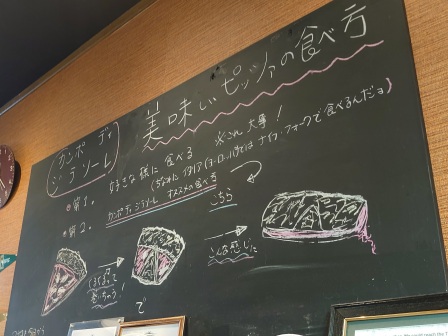 美味しいピッツァの食べ方
カンポ ディ
ジラソーレ
第1。 好きな様に食べる ※これ大事！
(ちなみに イタリア(ヨーロッパ)では ナイフ・フォークで食べるんだョ)
第2。 カンポ・ディ・ジラソーレ オススメの食べ方 こちら
で
こんな感じに